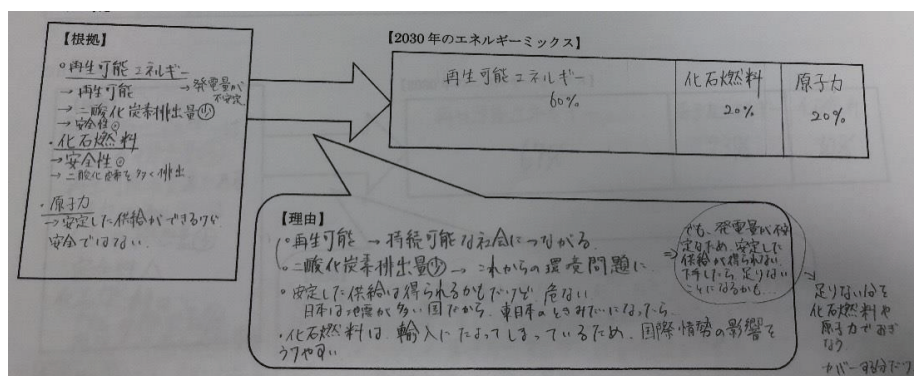 【根拠】
○再生可能エネルギー
→再生可能
→発電量が
不安定
→二酸化炭素排出量㊛
→安全性◎
・化石燃料
→安全性◎
→二酸化炭素を多く排出
・原子力
→安定した供給ができるけど
安全ではない
【2030年のエネルギーミックス】
再生可能エネルギー
60%
化石燃料
20%
原子力
20%
【理由】
○再生可能→持続可能な社会につながる
○二酸化炭素排出量少→これからの環境問題に
○安定した供給は得られるかもだけど危ない
日本は地震が多い国だから、東日本のときみたいになったら
・化石燃料は、輸入にたよってしまっているため、国際情勢の影響を
うけやすい
⇒でも、発電量が不安
定なため、安定した
供給が得られない
下手したら足りない
ことになるかも…
足りない分を
化石燃料や
原子力でおぎ
なう
カバーする分だけ